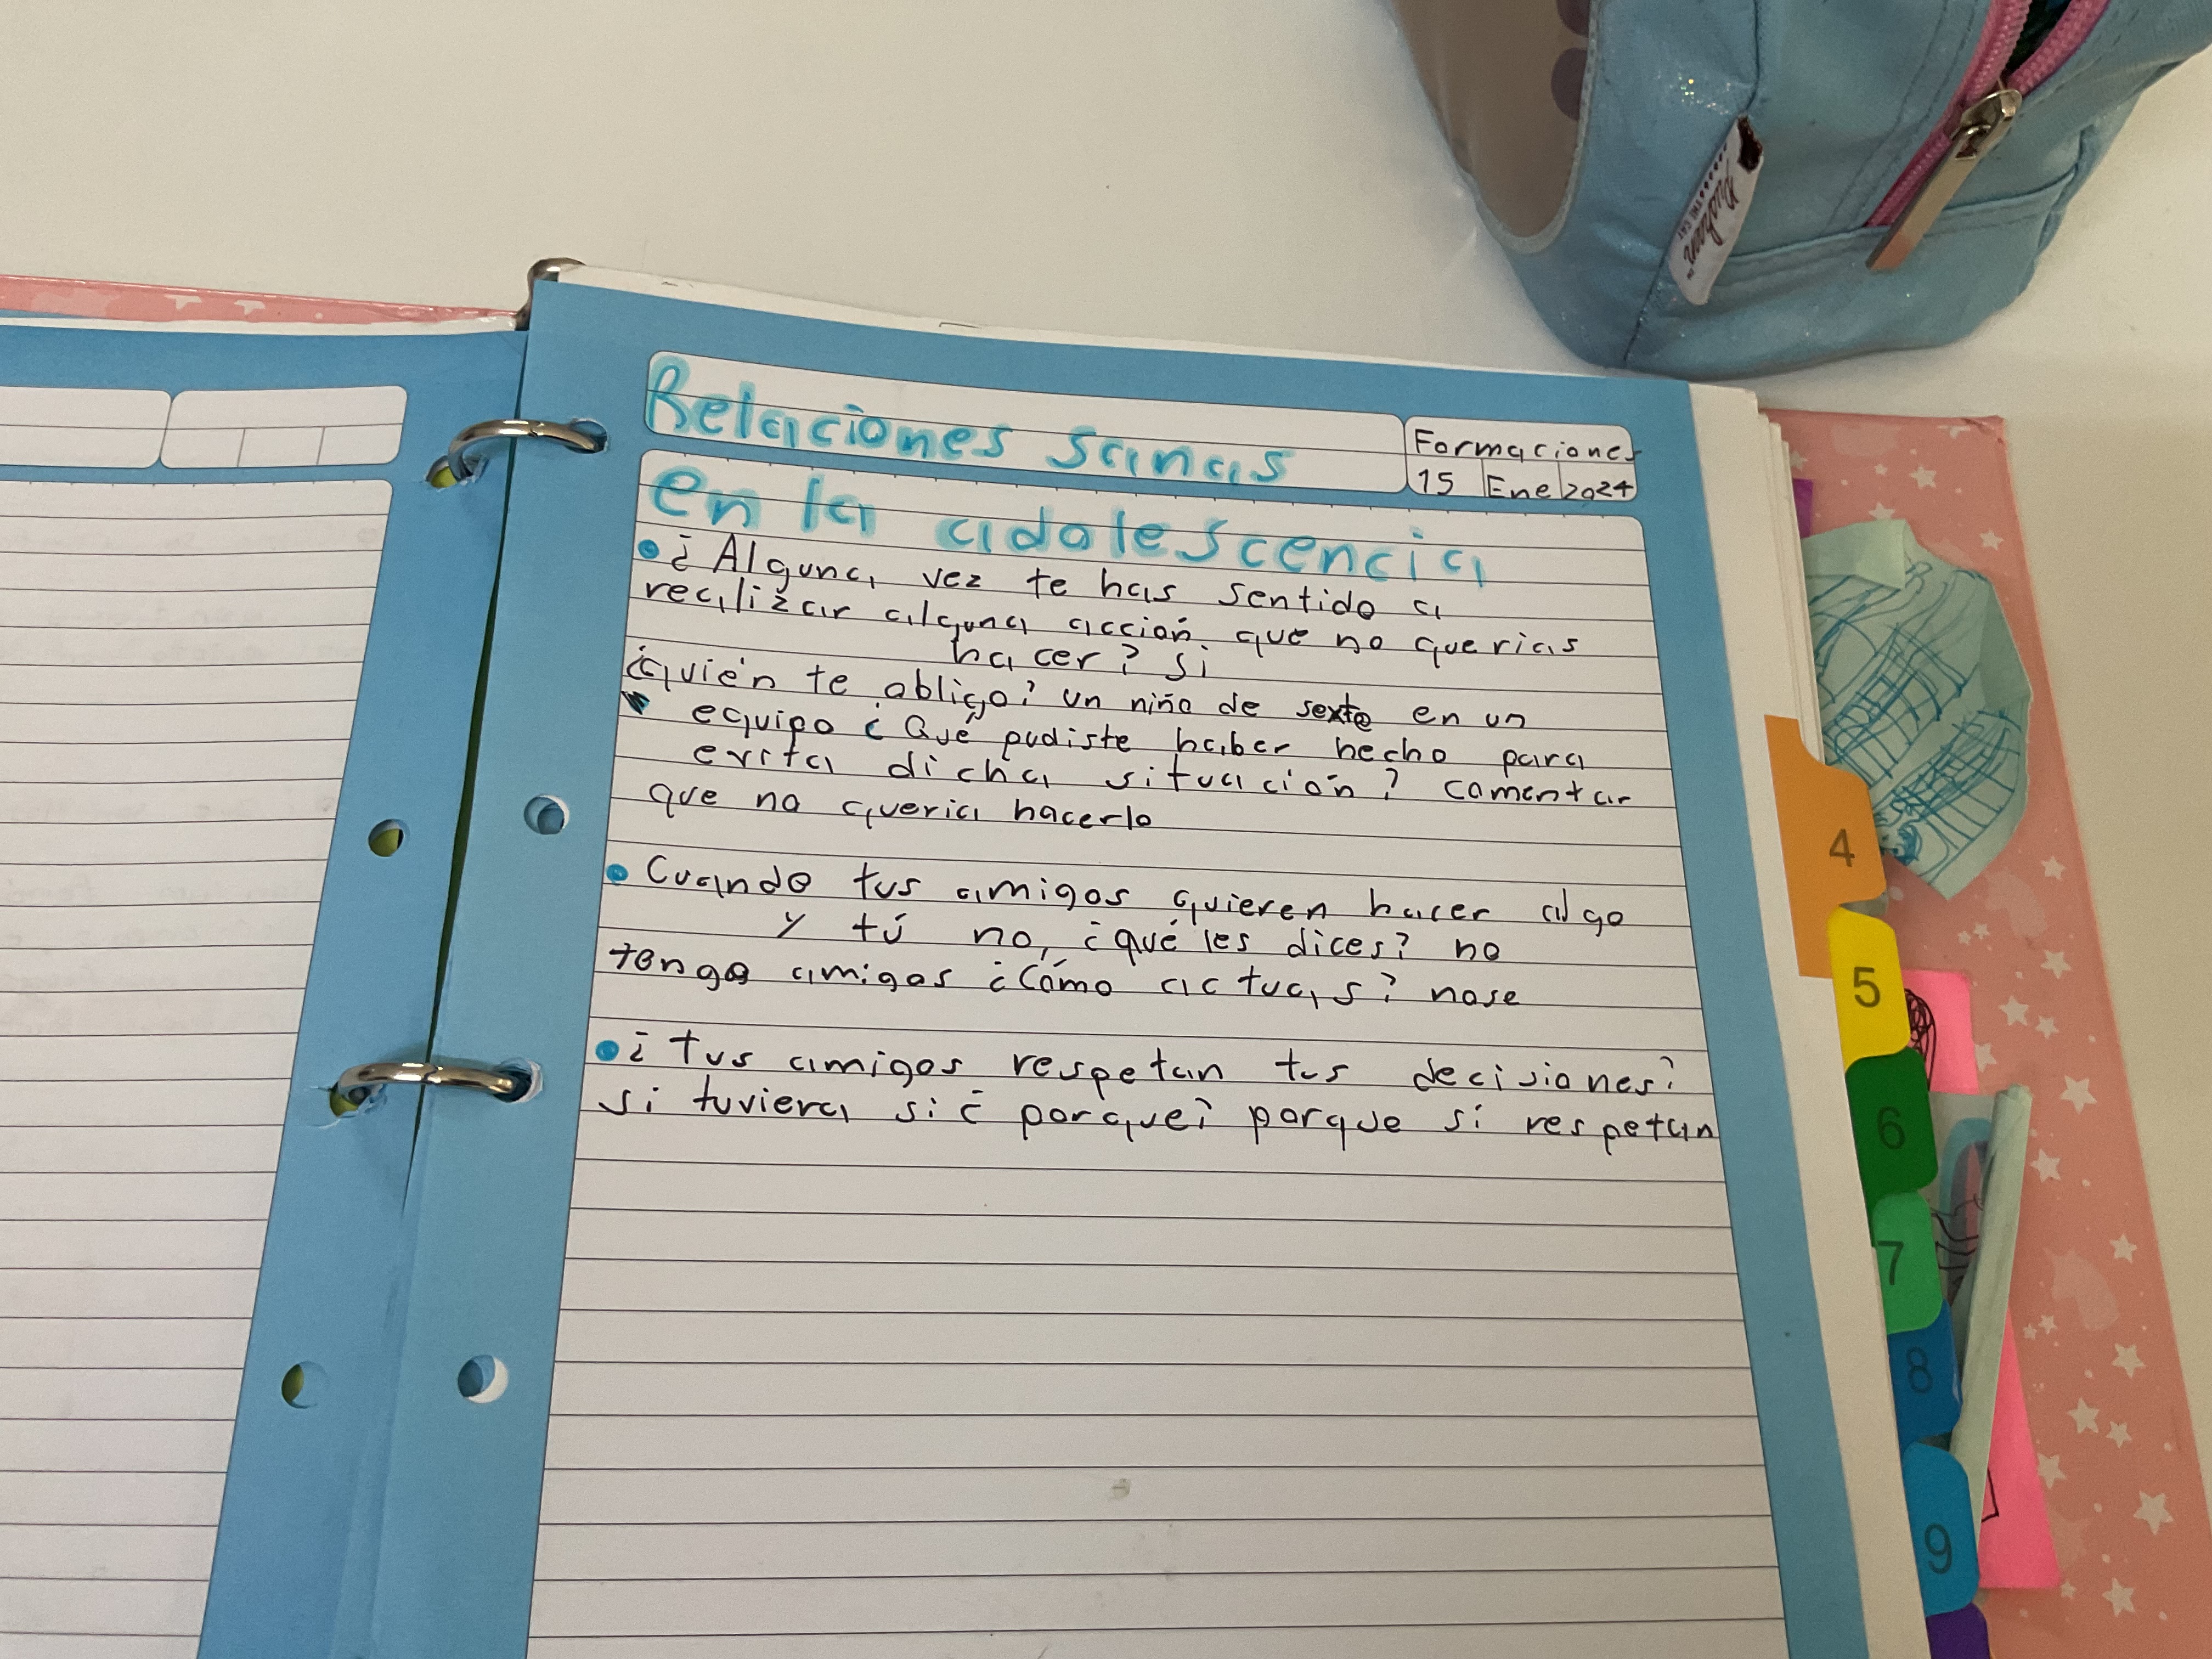 Pusheen
THE CAT
Relaciones sanas
Formaciones
15 Ene 2024
en la adolescencia
¿Alguna vez te has sentido a
realizar alguna acción que no querias
hacer? si
¿quién te obligo? un niño de sexto en un
equipo ¿Qué pudiste haber hecho para
evita dicha situación? comentar
que no queria hacerlo
Cuando tus amigos quieren hacer algo
y tú no, ¿qué les dices? no
tengo amigos ¿Cómo actuas? nose
¿Tus amigos respetan tus decisiones?
si tuviera si ¿porque? porque si respetan
4
5
6
7
8
9